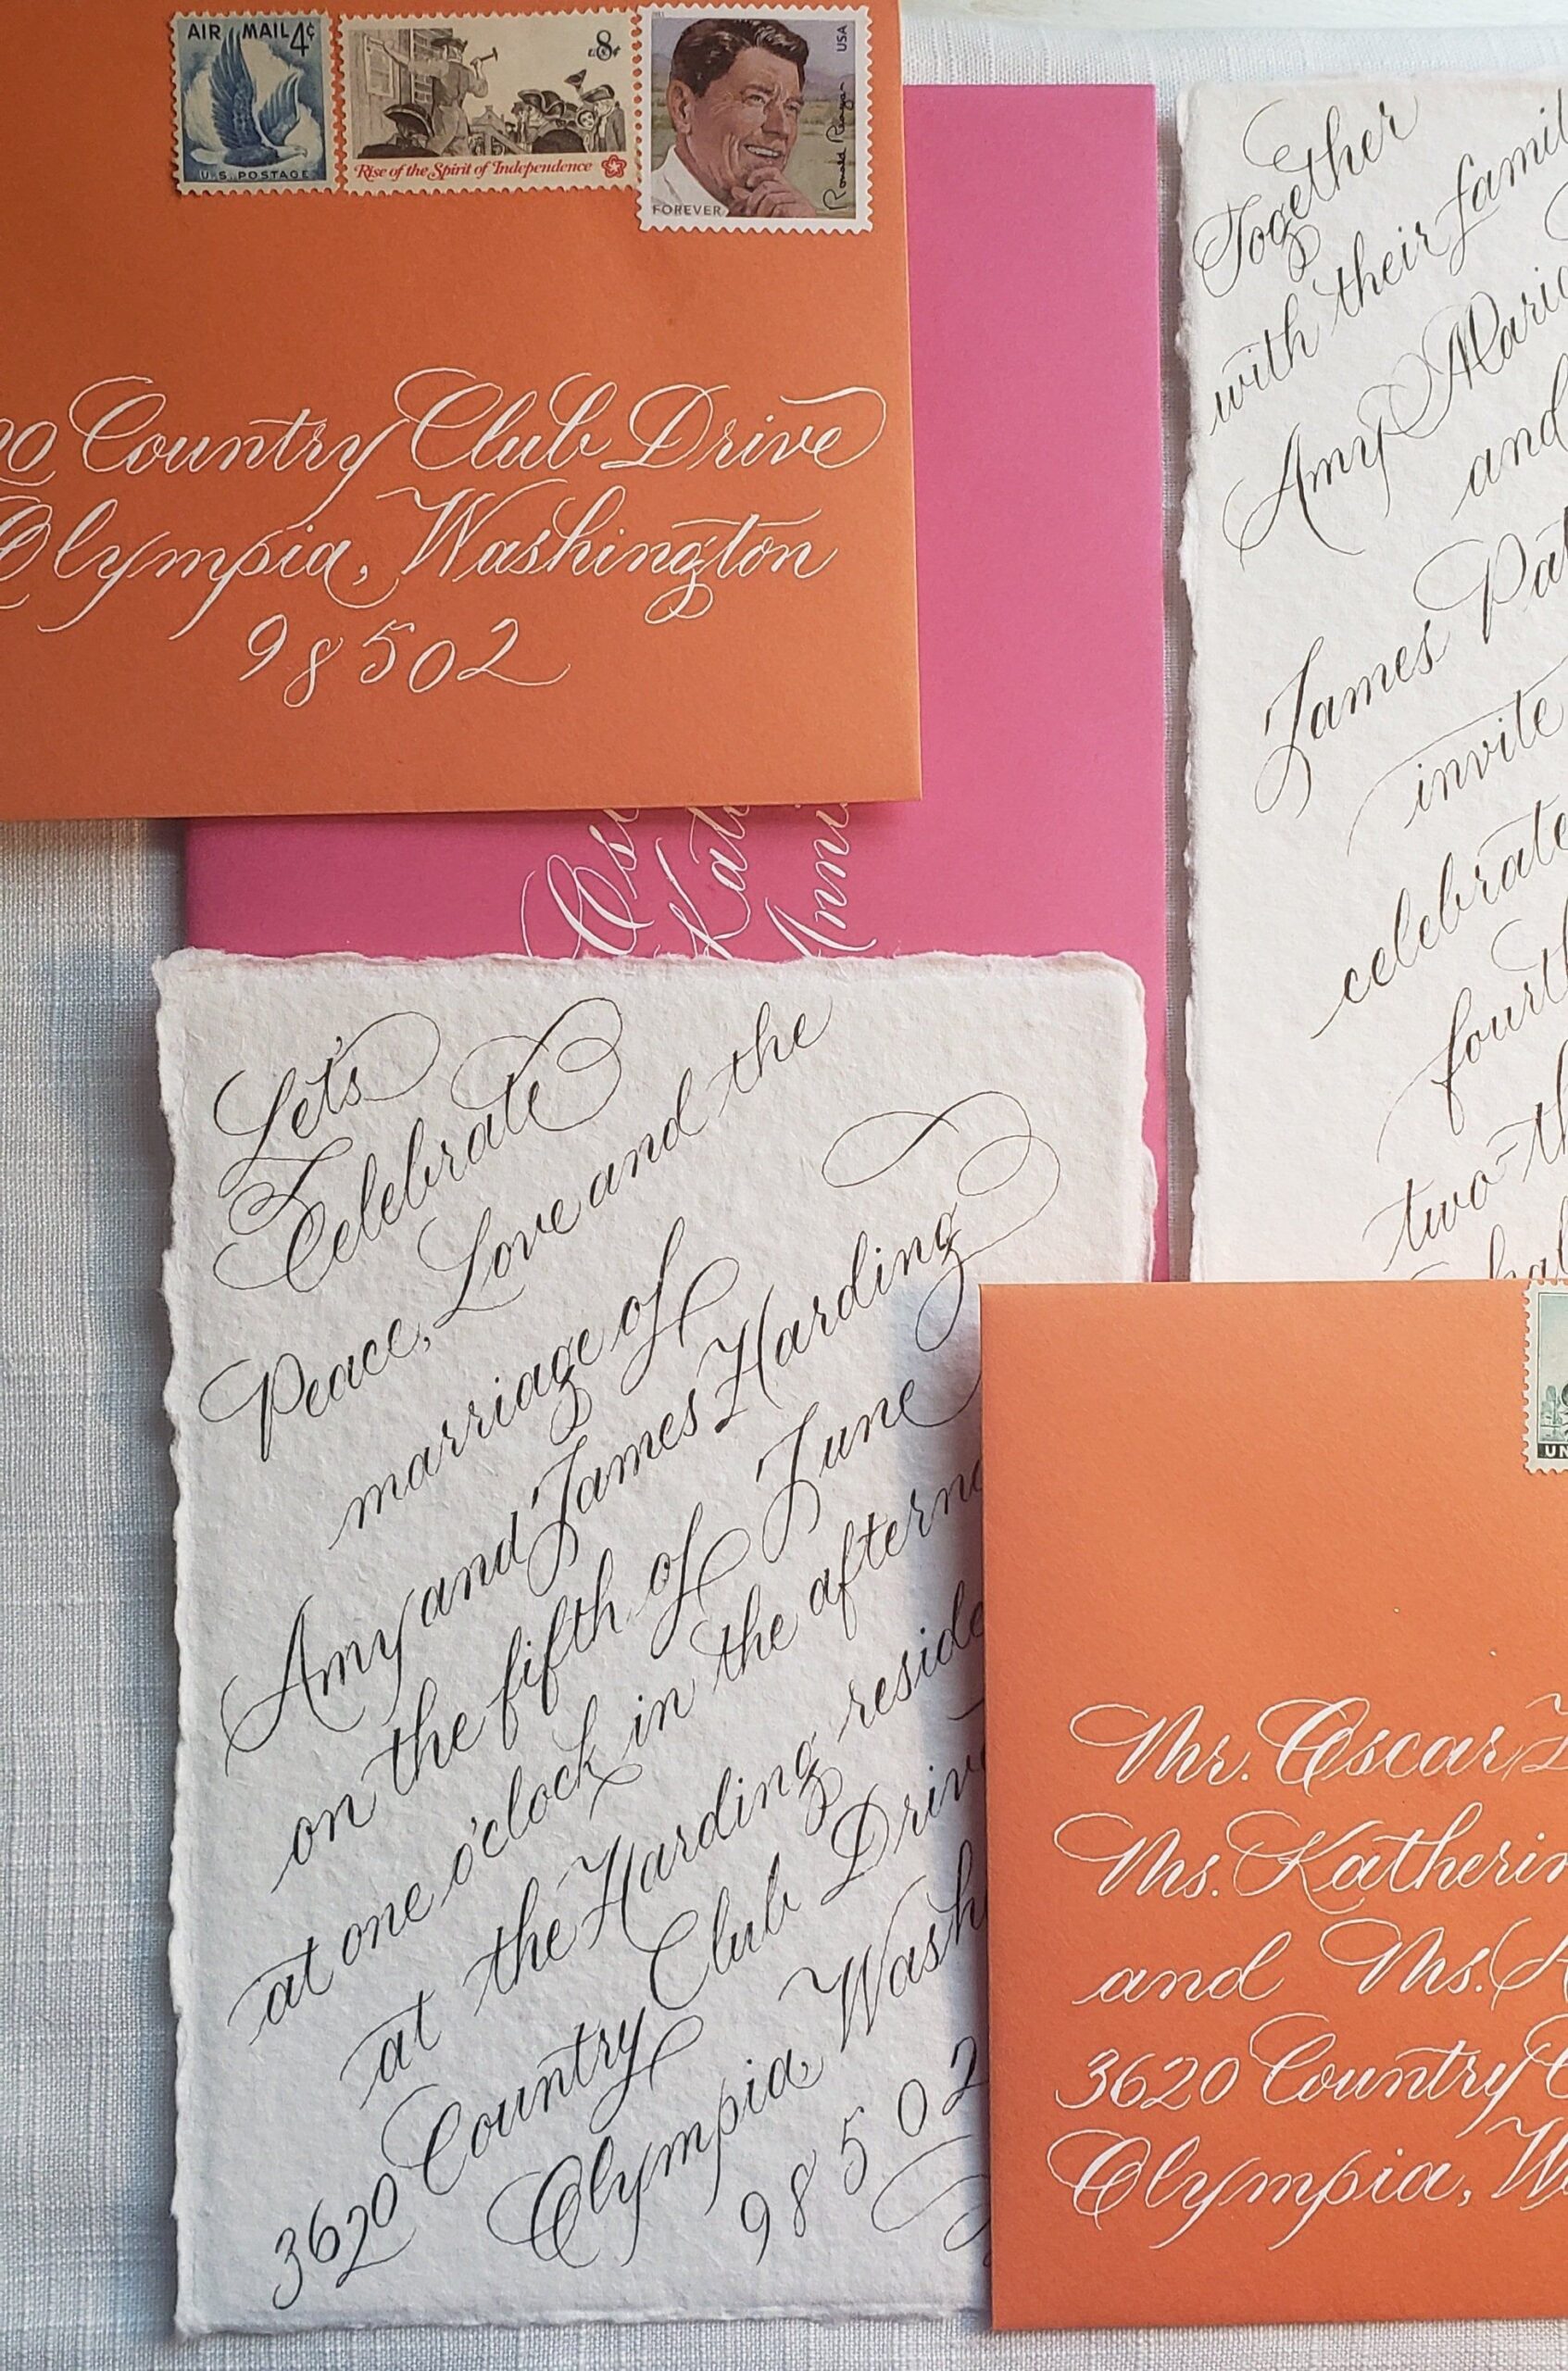 AIR MAIL 4¢
U.S. POSTAGE
8¢
Rise of the Spirit of Independence
USA
Ronald Reagan
FOREVER
Country Club Drive
Olympia, Washington
98502
Together
with their
Amy Marie
and
James
invite
celebrate
Let's
Celebrate
Peace, Love and the
marriage of
Amy and James Harding
on the fifth of June
at one o'clock in the
at the Harding
3620 Country Club
Olympia,
98502
Mr. Oscar
Ms.
and Ms.
3620 Country
Olympia,